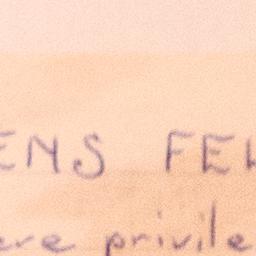 ENS FEL
ere privile